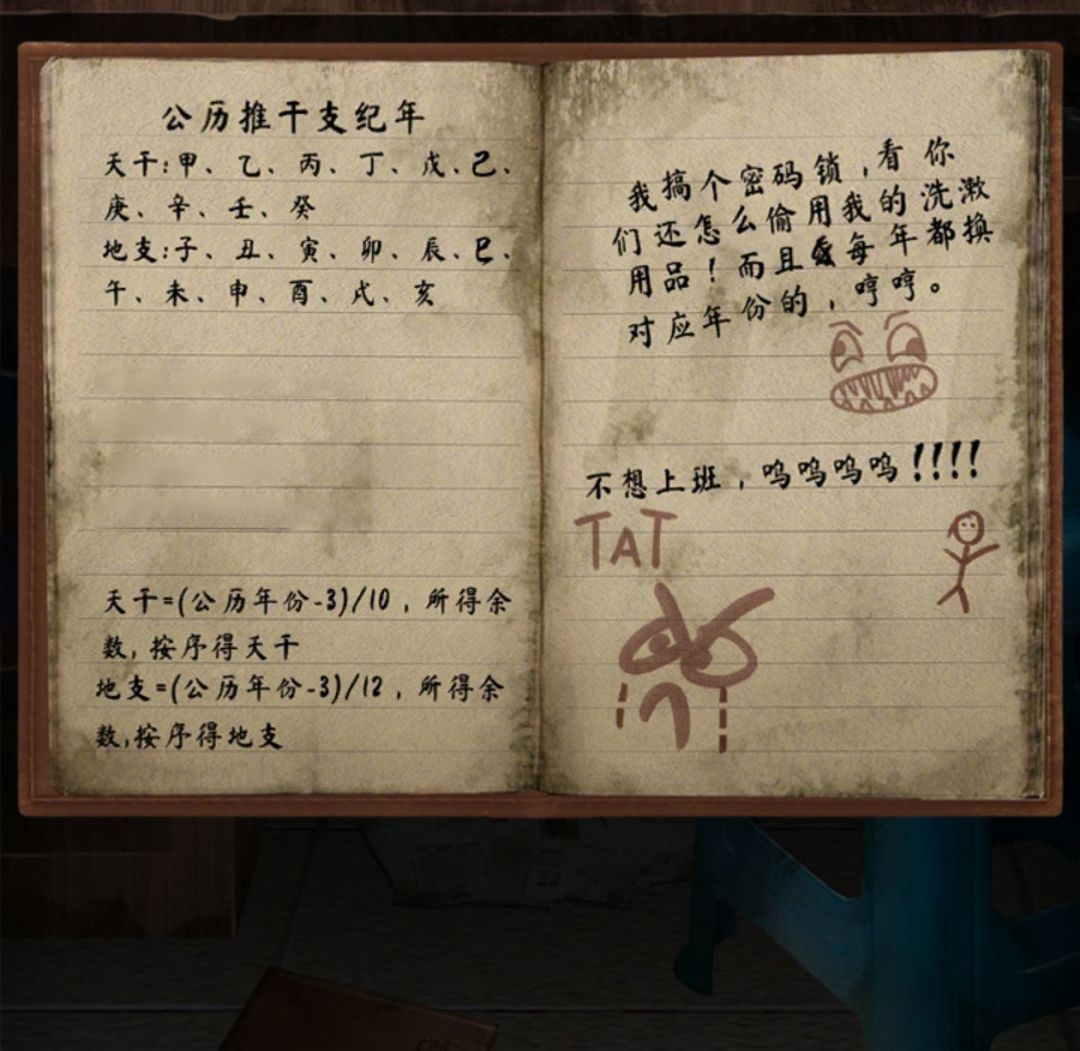 公历推干支纪年
天干:甲、乙、丙、丁、戊、己、
庚、辛、壬、癸
地支:子、丑、寅、卯、辰、巳、
午、未、申、酉、戌、亥
天干=(公历年份-3)/10，所得余
数,按序得天干
地支=(公历年份-3)/12，所得余
数,按序得地支
我搞个密码锁,看你
们还怎么偷用我的洗漱
用品!而且每年都换
对应年份的,哼哼。
不想上班,呜呜呜呜!!!!
TAT